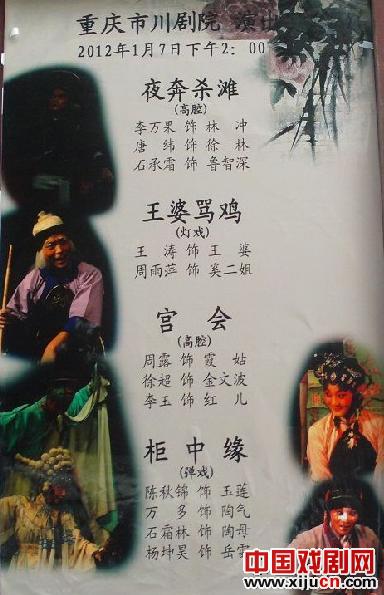 重庆市川剧院 演出
2012年1月7日下午2：00
夜奔杀滩
(高腔)
李万果 饰 林 冲
唐 纬 饰 徐 林
石承霜 饰 鲁智深
王婆骂鸡
(灯戏)
王 涛 饰 王 婆
周雨萍 饰 奚二姐
宫 会
(高腔)
周露 饰 霞 姑
徐超 饰 金文波
李玉 饰 红 儿
柜中缘
(弹戏)
陈秋锦 饰 玉莲
万 多 饰 陶气
石霜林 饰 陶母
杨坤昊 饰 岳雷
中国戏剧网
www.xijucn.com